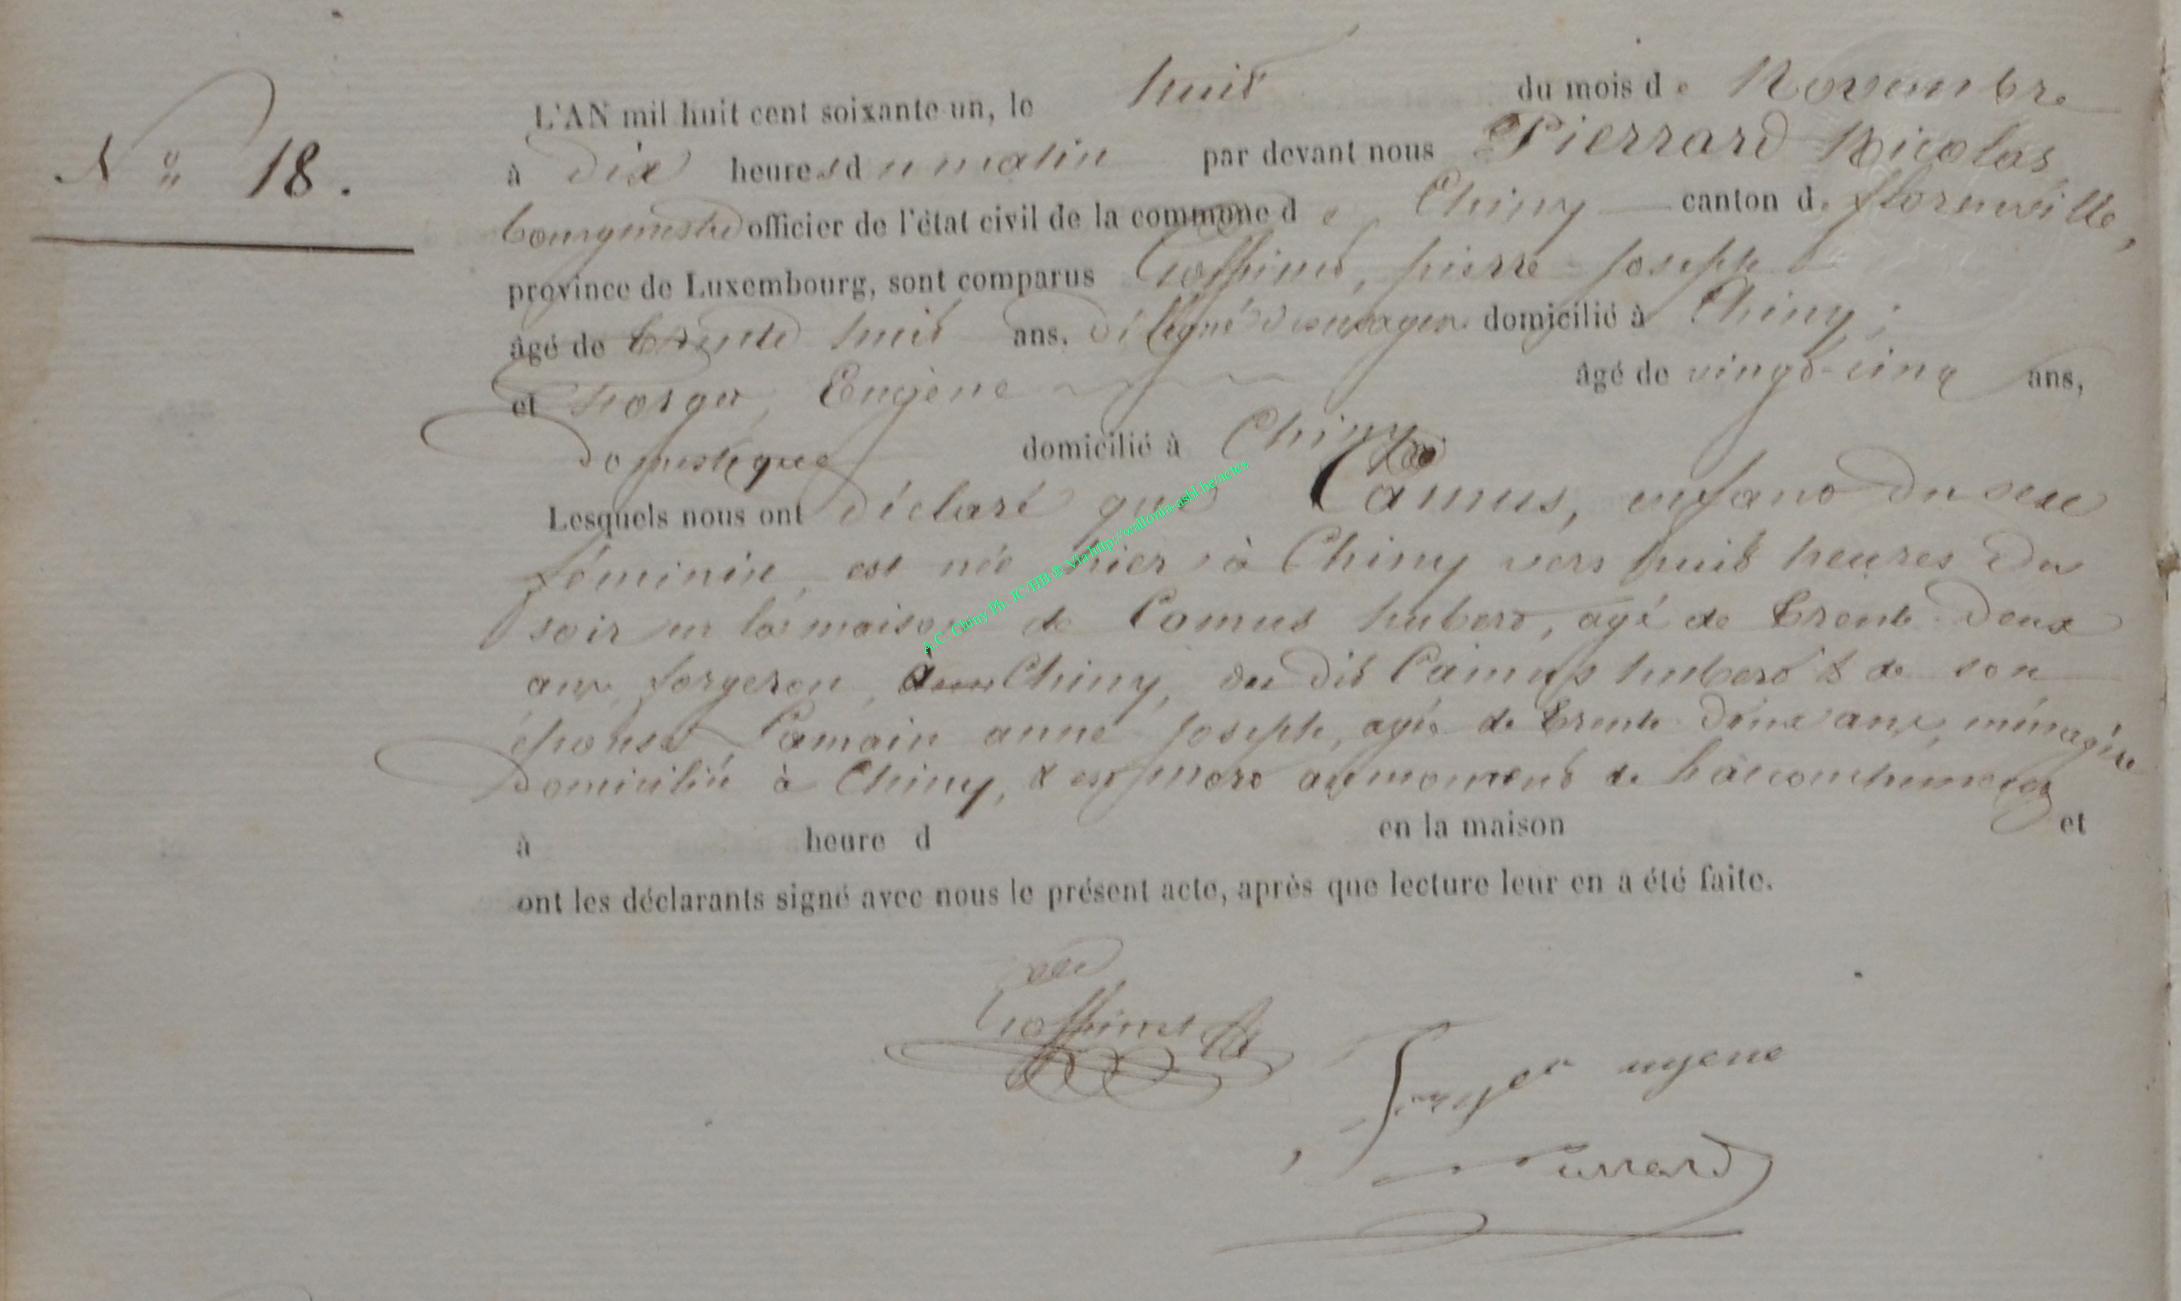 N° 18.
L'AN mil huit cent soixante-un, le huit du mois de Novembre
à dix heures du matin par devant nous Pierrard Nicolas
bourgmestre officier de l'état civil de la commune de Chiny canton de florenville,
province de Luxembourg, sont comparus Goffinet, pierre-joseph
âgé de trente huit ans, domicilié à Chiny;
et forget, Eugène âgé de vingt-cinq ans,
domestique domicilié à Chiny
Lesquels nous ont déclaré que Camus, enfant du sexe
féminin, est née hier à Chiny vers huit heures du
soir en la maison de Camus hubert, agé de trente-deux
ans, forgeron, à Chiny, du dit Camus hubert & de son
épouse Lamain anne joseph, agée de trente-deux ans, ménagère
domiciliée à Chiny, & est mort au moment de l'accouchement
à heure d en la maison et
ont les déclarants signé avec nous le présent acte, après que lecture leur en a été faite.
Goffinet
forget eugene
Pierrard
A.C. Chiny Ph. JC HB & via http://wallonia-asbl.be/actes